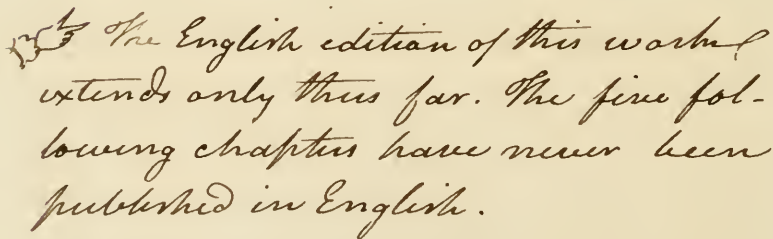 ☞ The English edition of this work
extends only thus far. The five fol-
lowing chapters have never been
published in English.